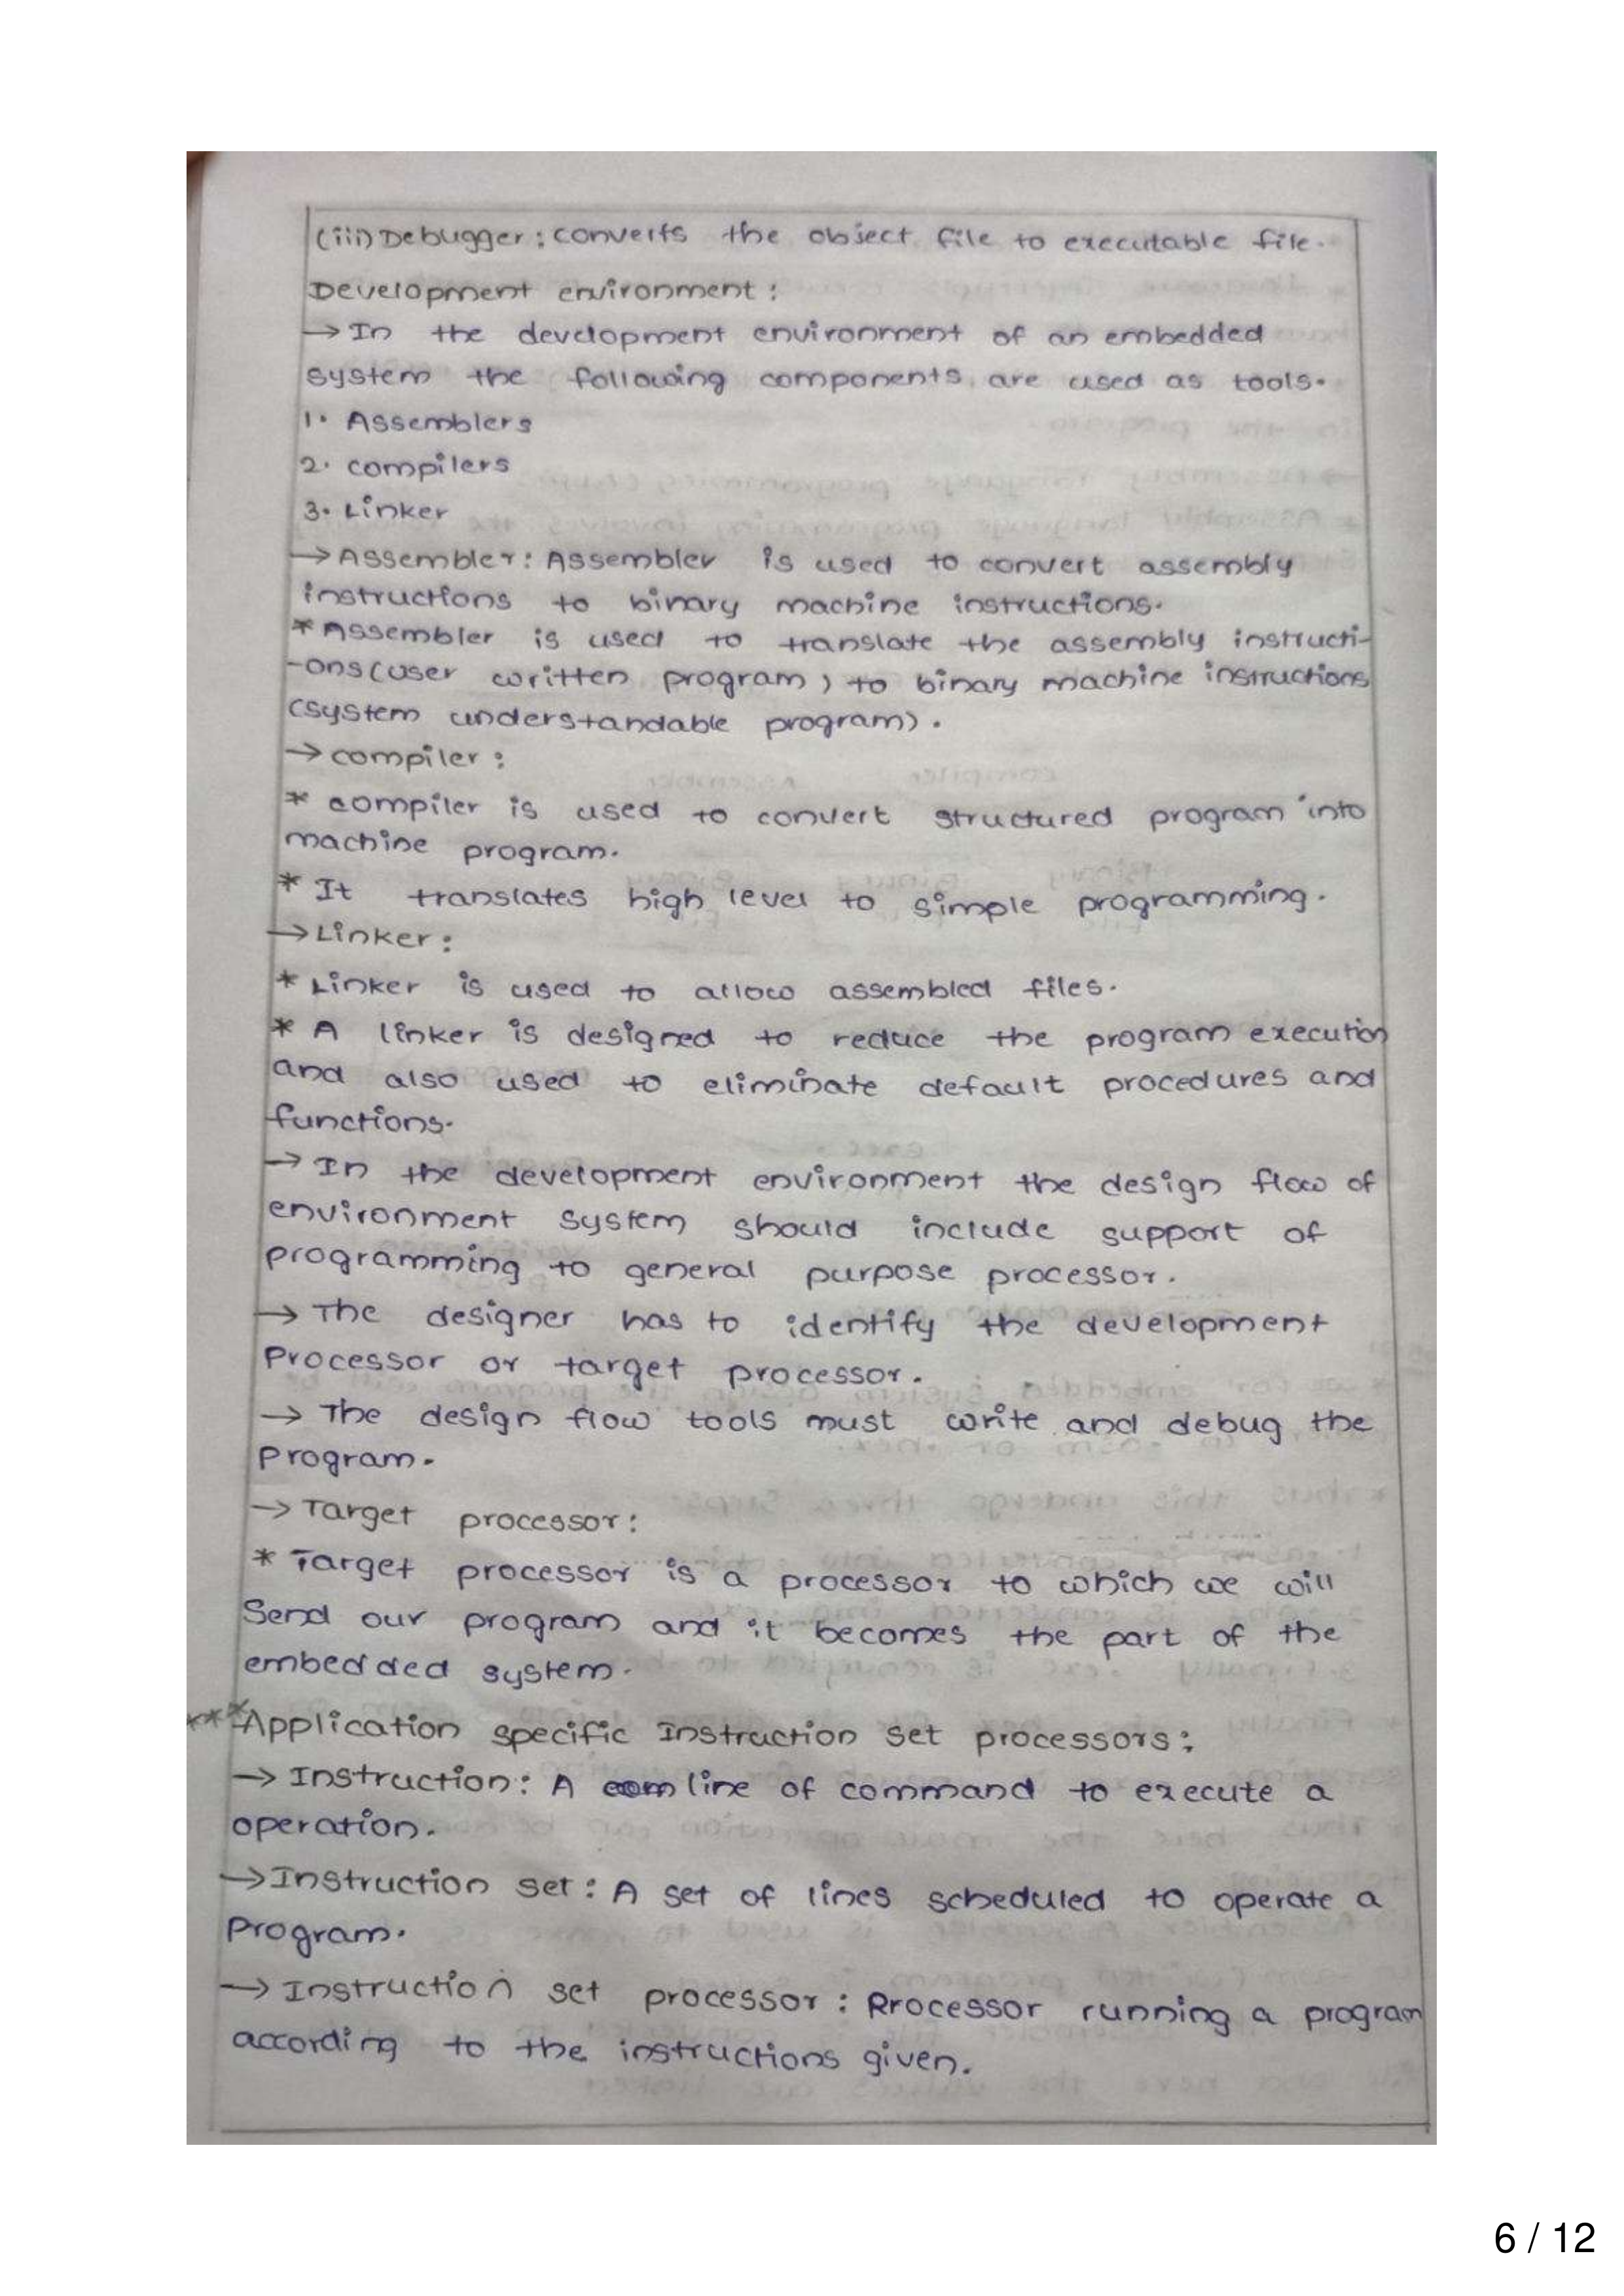 (iii) Debugger : converts the object file to executable file.
Development environment :
→ In the development environment of an embedded
system the following components are used as tools.
1. Assemblers
2. compilers
3. Linker
→ Assembler : Assembler is used to convert assembly
instructions to binary machine instructions.
* Assembler is used to translate the assembly instructi-
-ons (user written program) to binary machine instructions
(system understandable program).
→ compiler :
* compiler is used to convert structured program into
machine program.
* It translates high level to simple programming.
→ Linker :
* Linker is used to allow assembled files.
* A linker is designed to reduce the program execution
and also used to eliminate default procedures and
functions.
→ In the development environment the design flow of
environment system should include support of
programming to general purpose processor.
→ The designer has to identify the development
Processor or target processor.
→ The design flow tools must write and debug the
Program.
→ Target processor :
* Target processor is a processor to which we will
Send our program and it becomes the part of the
embedded system.
*** Application specific Instruction set processors :
→ Instruction : A line of command to execute a
operation.
→ Instruction set : A set of lines scheduled to operate a
Program.
→ Instruction set processor : Processor running a program
according to the instructions given.
6 / 12